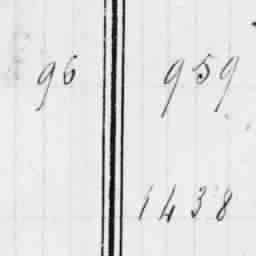 96 959
1438